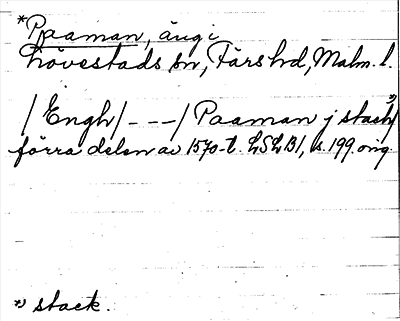 *Paaman, äng i
Lövestads sn, Färs hd, Malm. l.
/ Engh / - - - / Paaman j stach *)/
förra delen av 1570-t. LSLB1, s. 199. orig.
*) stack.